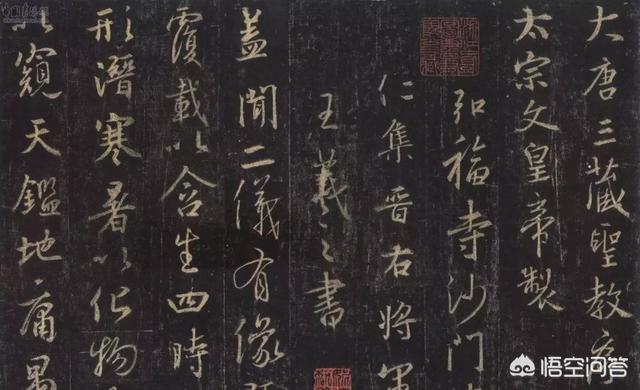 大唐三藏聖教序
太宗文皇帝製
弘福寺沙門
仁集晉右將軍
王羲之書
蓋聞二儀有像
覆載以含生四時
形潛寒暑以化物
以窺天鑑地庸愚
悟空问答